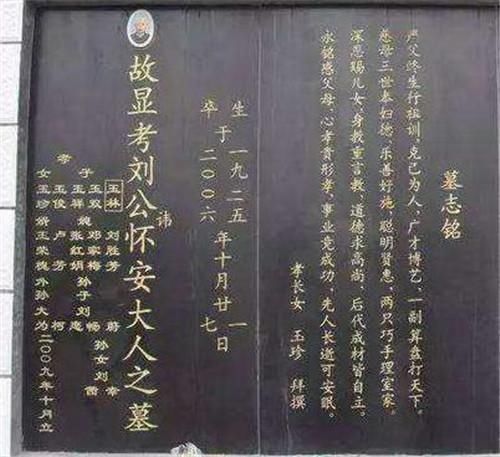 墓志铭
严父终生行祖训，克己为人，广才博艺，一副算盘打天下。
慈母三世秦妇德，乐善好施，聪明贤惠，两只巧手理室家。
深恩赐儿女，身教重言教，道德求高尚，后代成材皆自主。
永铭感父母，心孝贵形孝，事业竟成功，先人长逝可安眠。
孝长女 玉珍 拜撰
生于一九二五年十月廿一日
卒于二〇〇六年十月廿七日
故显考刘公讳怀安大人之墓
玉林 刘胜芳 蔚
子 玉双 邓家梅 孙子刘畅 孙女刘茜
玉祥 媳 张红娟
孝 玉俊 卢芳
女 玉珍 婿 王荣槐 外孙 大为 柯
二〇〇九年十月立